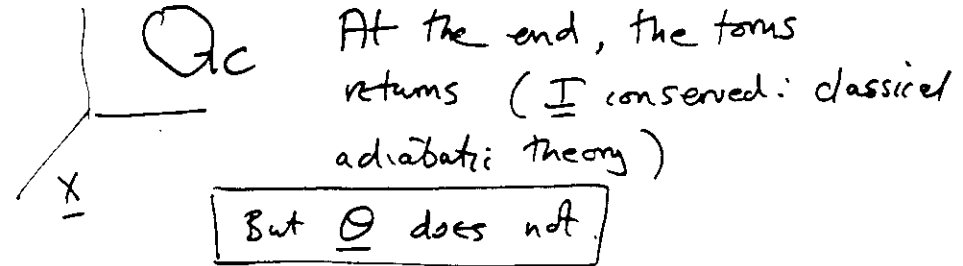 C At the end, the torus
returns (I conserved: classical
adiabatic theory)
X
But θ does not.